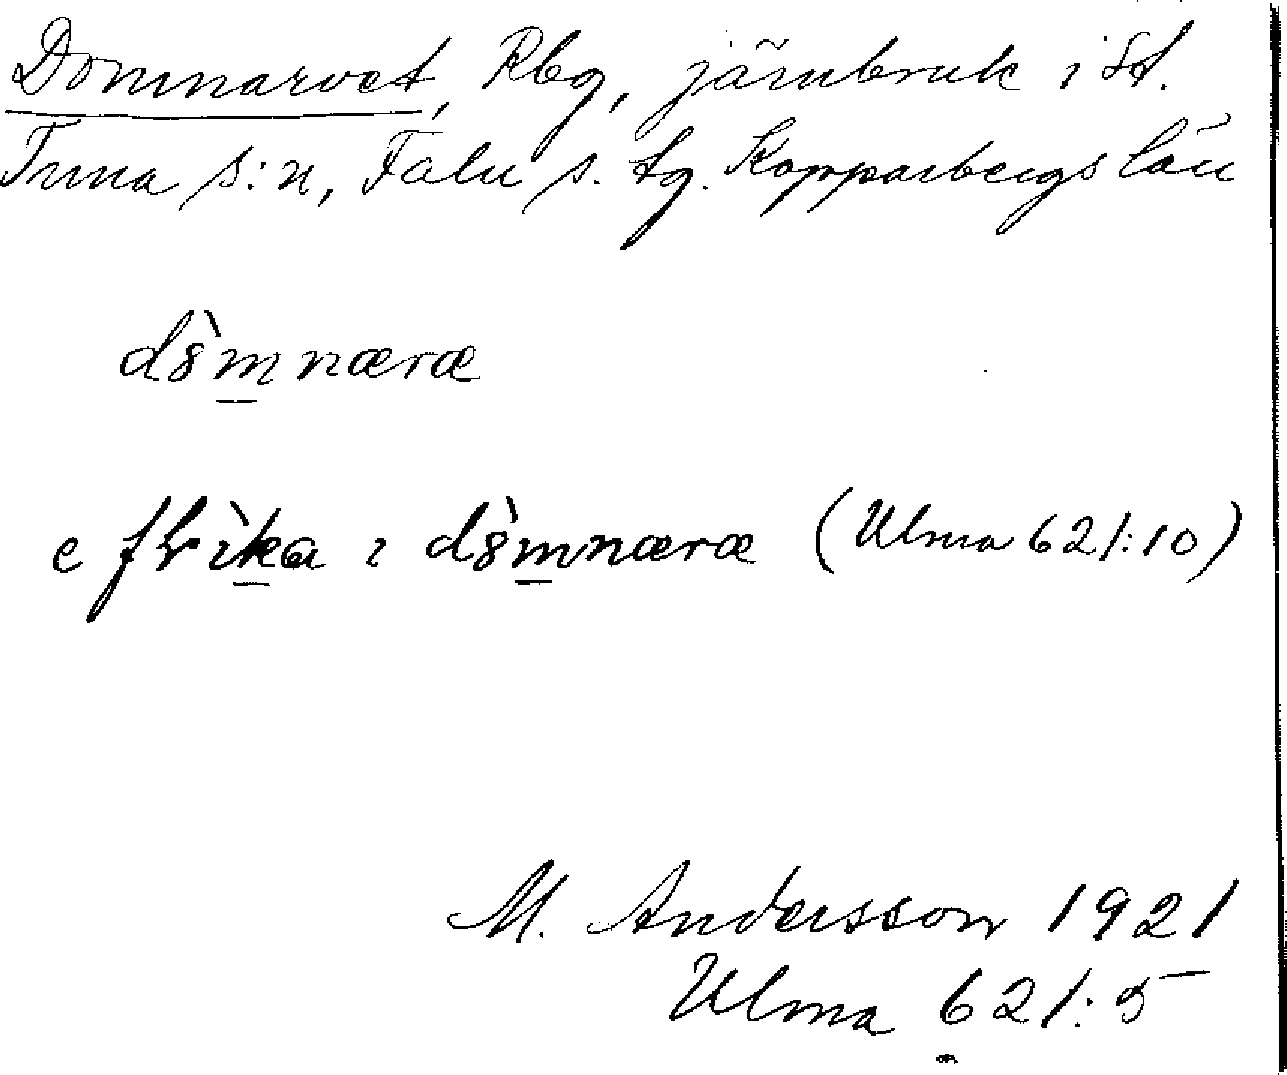 Domnarvet, Kbg, järnbruk i St.
Tuna s:n, Falu s. tg. Kopparbergs län
dȯ̀m̲næræ
e frìk̲a ı dȯ̀m̲næræ (Ulma 621:10)
M. Andersson 1921
Ulma 621:5